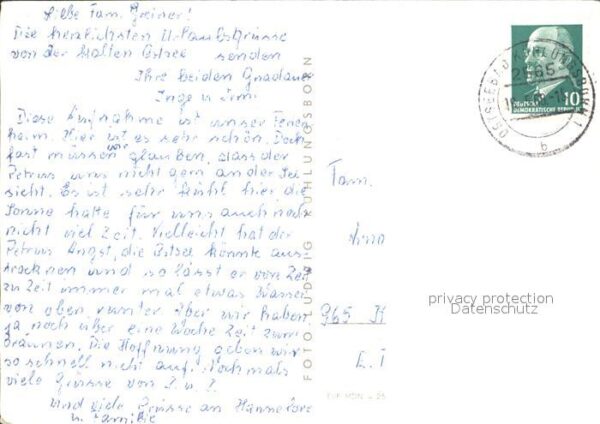 Liebe Fam. Greiner!
Die herzlichsten Urlaubsgrüsse
von der kalten Ostsee senden
Ihre beiden Gnadauer
Inge u.
Diese Aufnahme ist unser Ferien
heim. Hier ist es sehr schön. Doch
fast müssen wir glauben, dass der
Petrus uns nicht gern an der See
sieht. Es ist sehr kühl hier die
Sonne hatte für uns auch noch
nicht viel Zeit. Vielleicht hat der
Petrus Angst, die Ostsee könnte aus-
trocknen und so lässt er von Zeit
zu Zeit immer mal etwas Wasser
von oben runter. Aber wir haben
ja noch über eine Woche Zeit zum
bräunen. Die Hoffnung geben wir
so schnell nicht auf. Nochmals
viele Grüsse von I. u.
und viele Grüsse an Hannelore
u. Familie
FOTO LUDWIG KÜHLUNGSBORN
OSTSEEBAD KÜHLUNGSBORN 1
2565
b
10
DEUTSCHE
DEMOKRATISCHE REPUBLIK
Fam.
965
privacy protection
Datenschutz